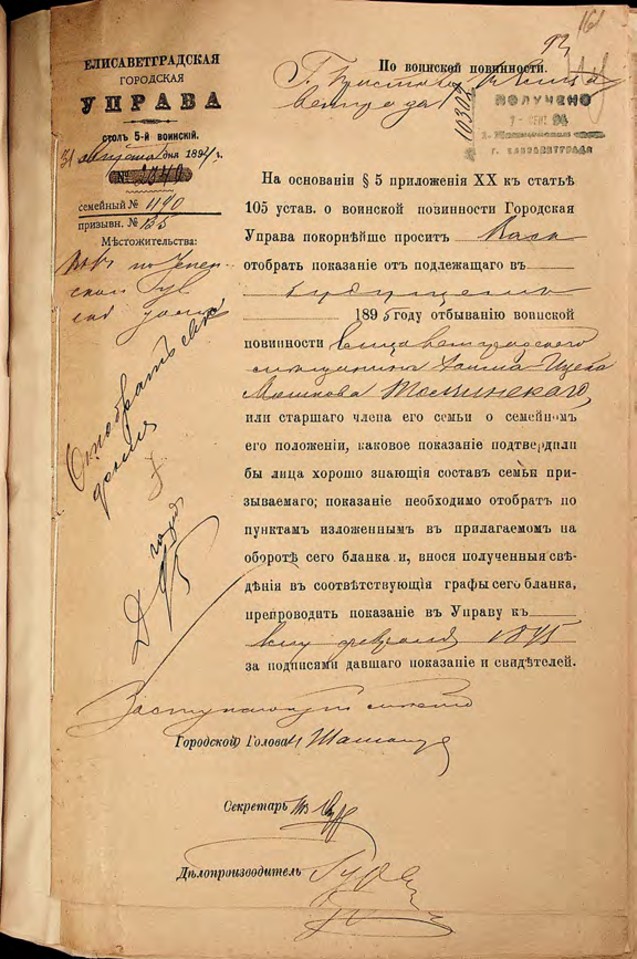 161
92
ЕЛИСАВЕТГРАДСКАЯ
ГОРОДСКАЯ
УПРАВА
столъ 5-й воинскій.
31 августа дня 1894 г.
№ 2340
семейный № 1190
призывн. № 135
Мѣстожительства:
По воинской повинности.
Г. Приставу
10302
ПОЛУЧЕНО
г. ЕЛИСАВЕТГРАДА
На основаніи § 5 приложенія XX къ статьѣ
105 устав. о воинской повинности Городская
Управа покорнѣйше проситъ Васъ
отобрать показаніе отъ подлежащаго въ
будущемъ
1895 году отбыванію воинской
повинности Елисаветградского
мѣщанина Хаима-Ицека
Мошкова Томчинскаго,
или старшаго члена его семьи о семейномъ
его положеніи, каковое показаніе подтвердили
бы лица хорошо знающія составъ семьи при-
зываемаго; показаніе необходимо отобрать по
пунктамъ изложеннымъ въ прилагаемомъ на
оборотѣ сего бланка и, внося полученныя свѣ-
дѣнія въ соотвѣтствующія графы сего бланка,
препроводить показаніе въ Управу къ
февраля 1895
за подписями давшаго показаніе и свидѣтелей.
Отобрать свѣ-
дѣнія
Заступающій мѣсто
Городской Голова
Секретарь
Дѣлопроизводитель